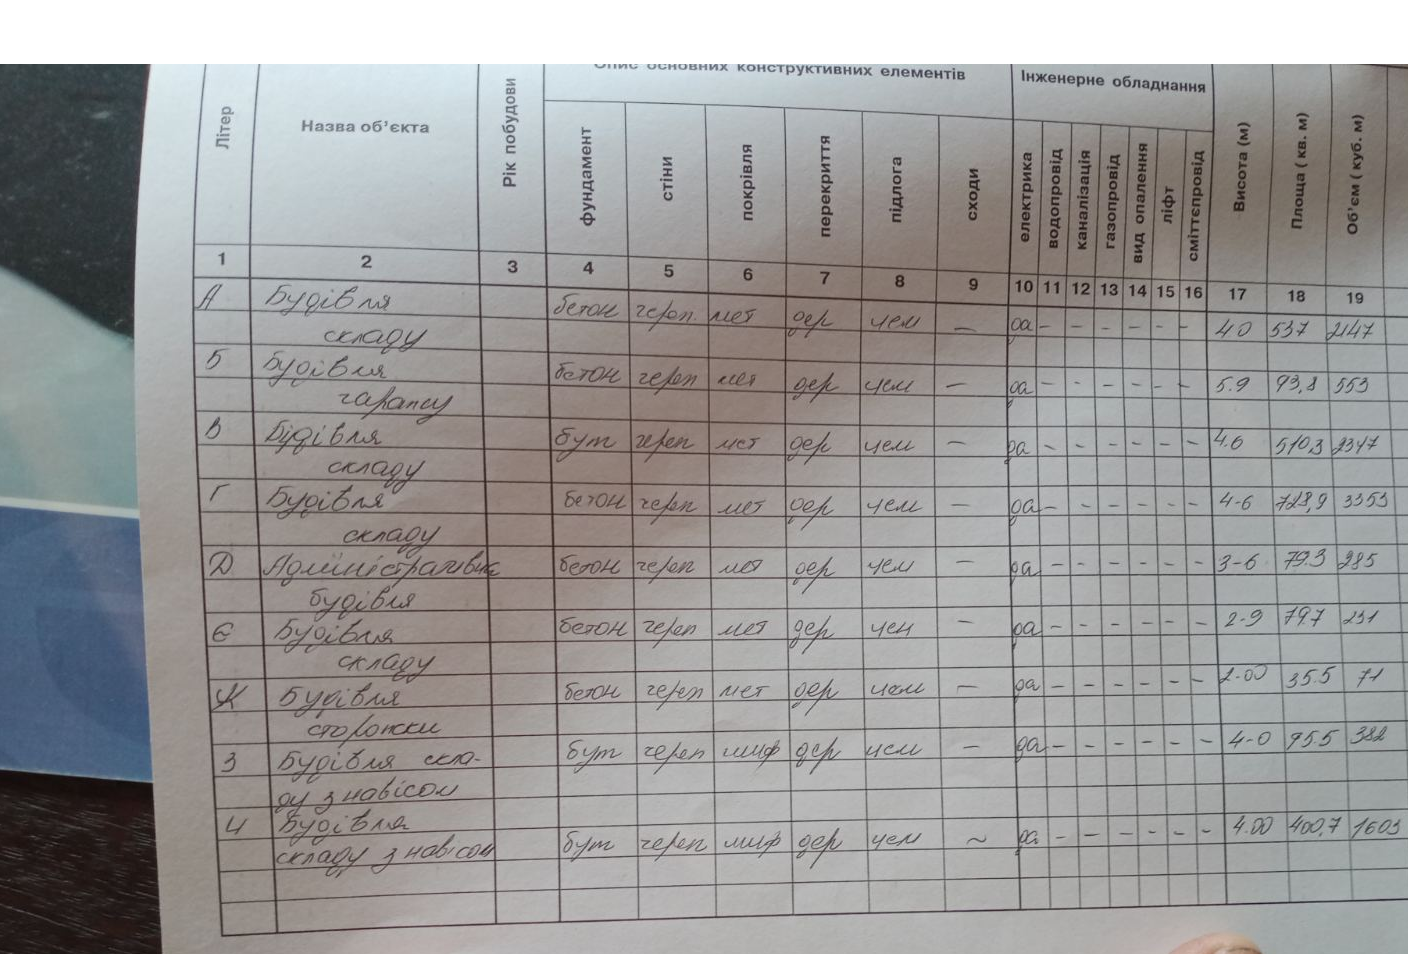 Опис основних конструктивних елементів Інженерне обладнання
Літер Назва об'єкта Рік побудови фундамент стіни покрівля перекриття підлога сходи електрика водопровід каналізація газопровід вид опалення ліфт сміттєпровід Висота (м) Площа ( кв. м) Об'єм ( куб. м)
1 2 3 4 5 6 7 8 9 10 11 12 13 14 15 16 17 18 19
А Будівля бетон череп. мет дер цем — да - - - - - - 4.0 537 2147
складу
Б Будівля бетон череп мет дер цем — да - - - - - - 5.9 93,8 553
гаражу
В Будівля бут череп мет дер цем — да - - - - - - 4.6 510,3 2347
складу
Г Будівля бетон череп мет дер цем — да - - - - - - 4-6 728,9 3353
складу
Д Адміністративна бетон череп мет дер цем — да - - - - - - 3-6 79.3 285
будівля
Є Будівля бетон череп мет дер цем — да - - - - - - 2-9 79.7 231
складу
Ж Будівля бетон череп мет дер цем — да - - - - - - 2-00 35.5 71
сторожки
З Будівля скла- бут череп шиф дер цем — да - - - - - - 4-0 95.5 382
ду з навісом
И Будівля
складу з навісом бут череп шиф дер цем ~ да - - - - - - 4.00 400,7 1603